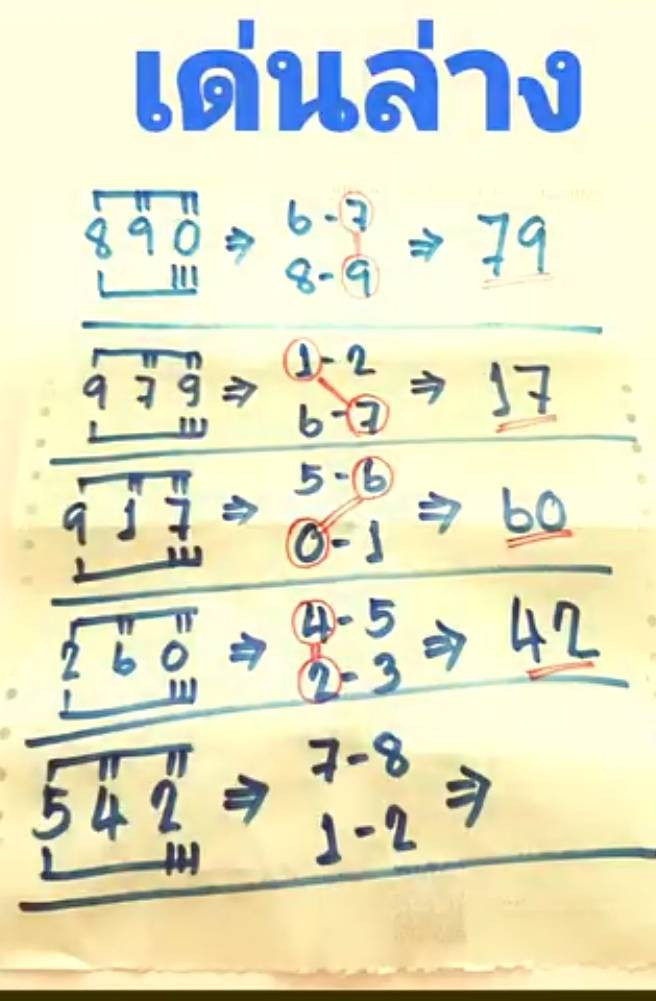 เด่นล่าง
890 ⇒ 6-7 8-9 ⇒ 79
979 ⇒ 1-2 6-7 ⇒ 17
917 ⇒ 5-6 0-1 ⇒ 60
260 ⇒ 4-5 2-3 ⇒ 42
542 ⇒ 7-8 1-2 ⇒